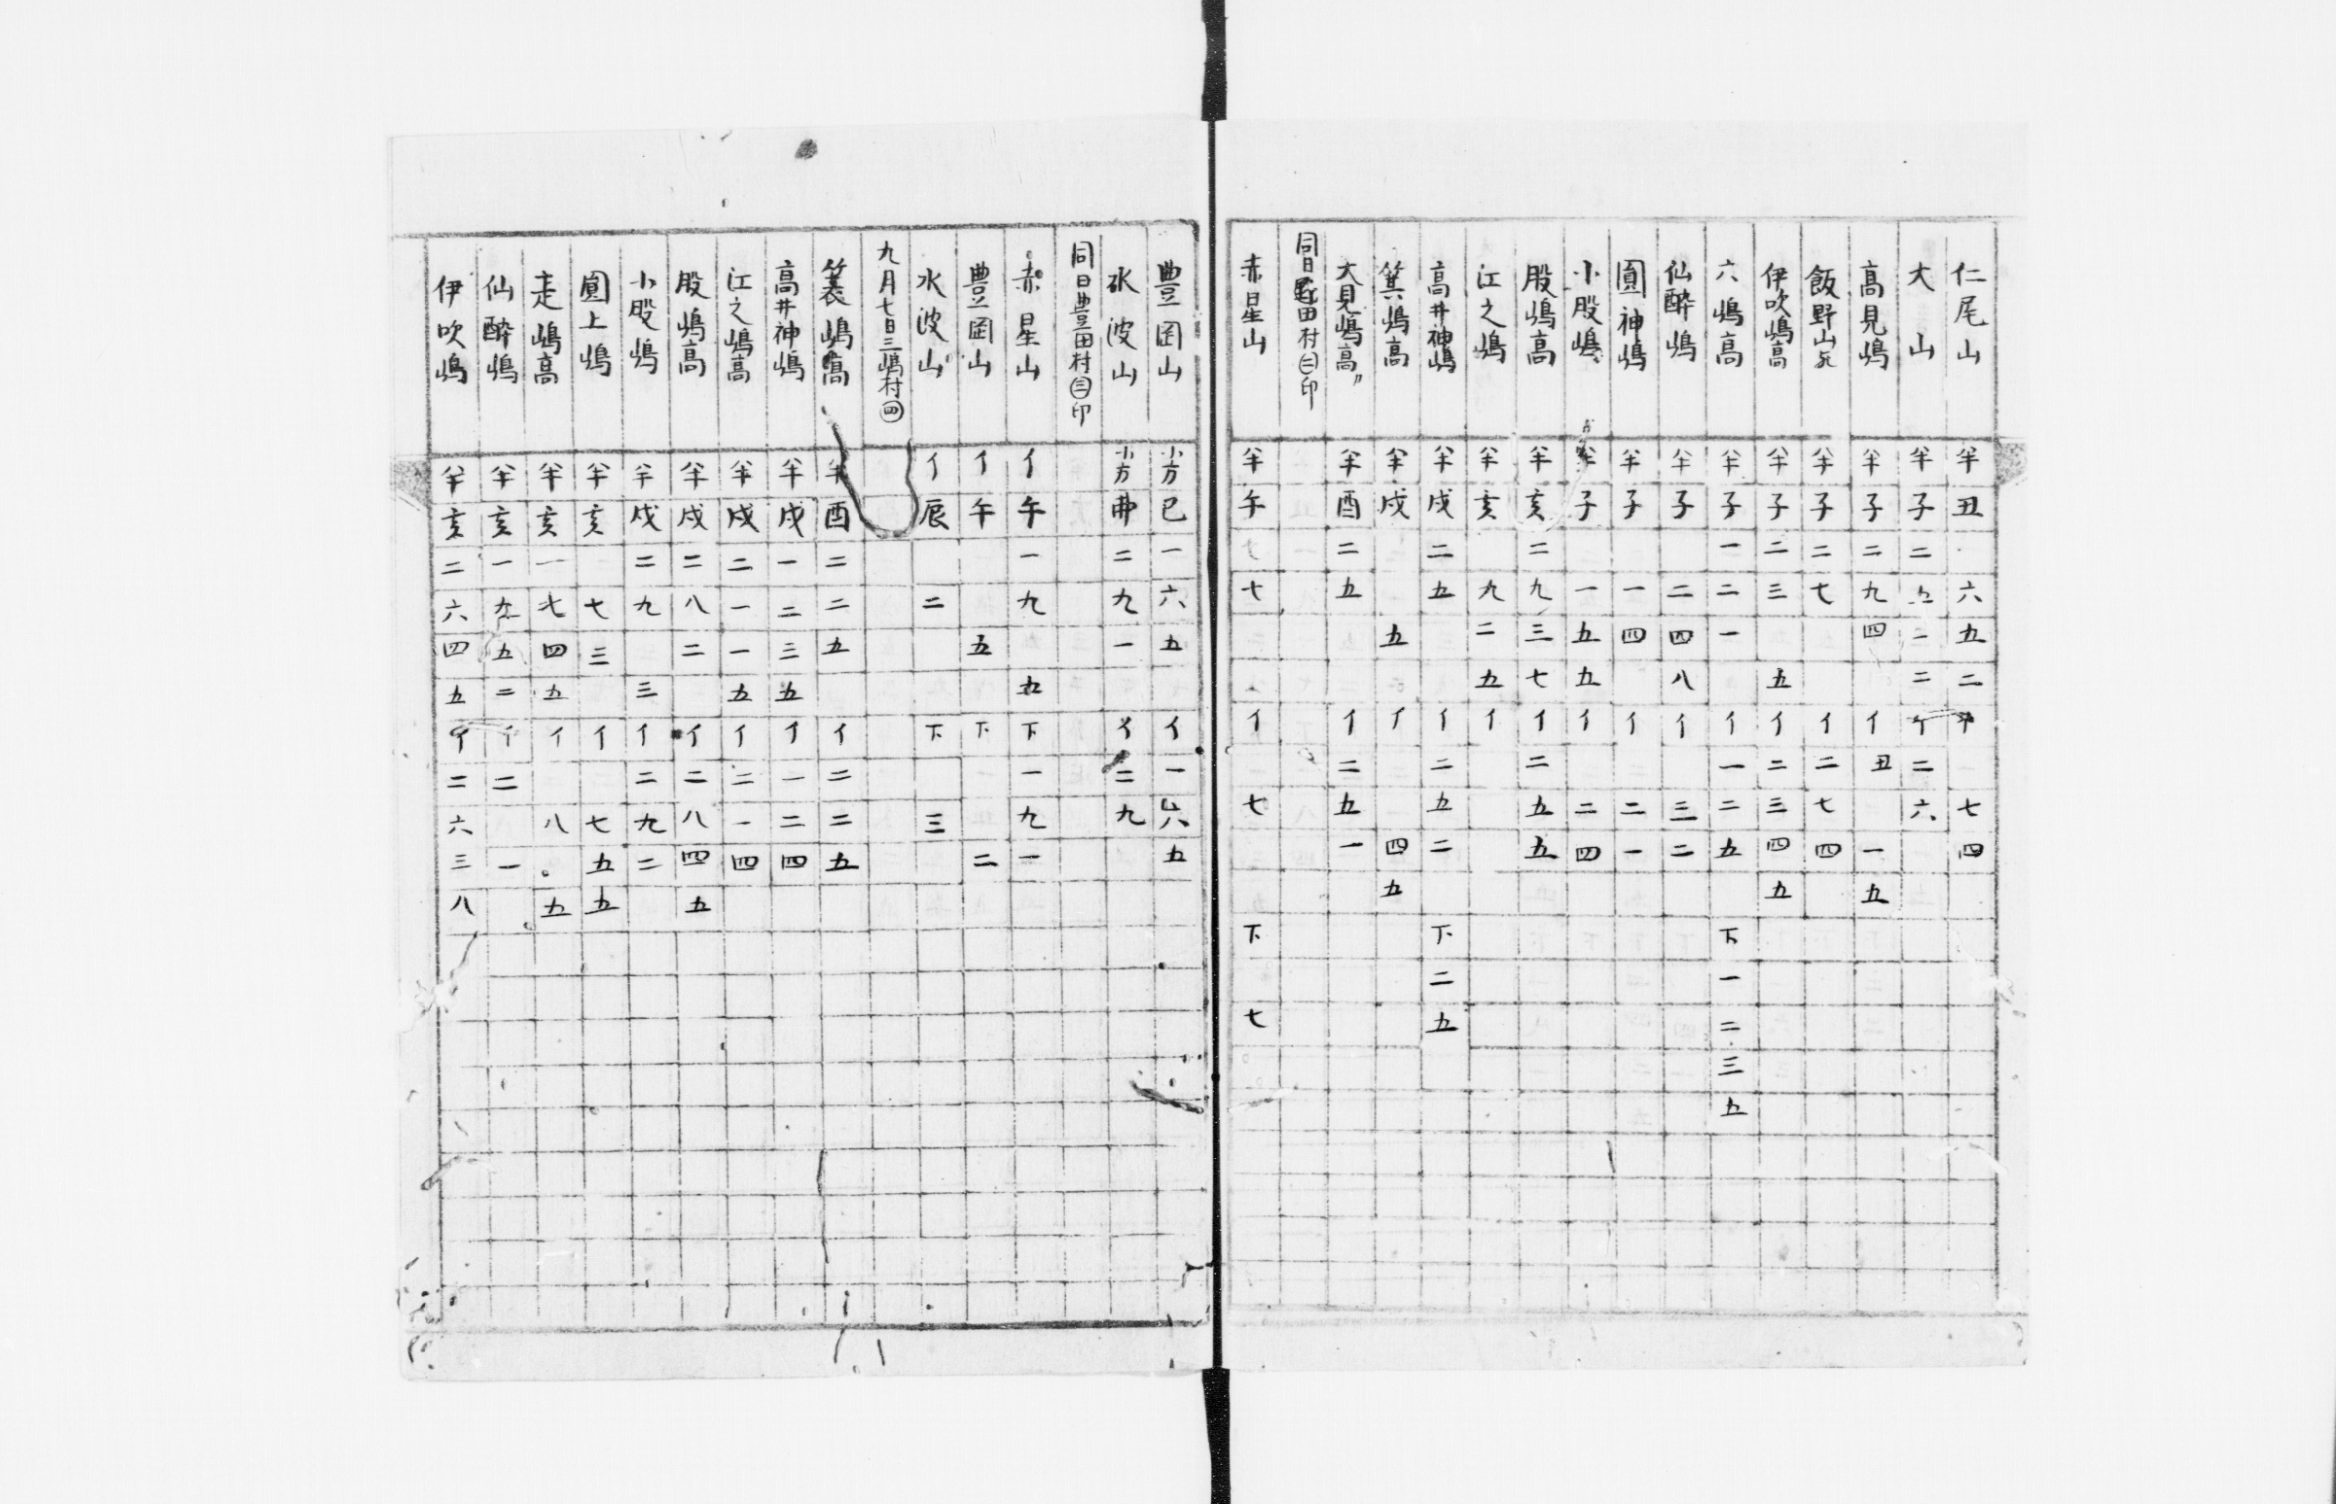 仁尾山 半丑 六五二 半 七四
大山 半子二五二二 イ二六
高見嶋 半子二九四 イ丑 一五
飯野山 半子二七 イ二七四
伊吹嶋高 半子二三 五 イ二三四五
六嶋高 半子一二一 イ一二五 下一二三五
仙酔嶋 半子 二四八 イ 三二
圓神嶋 半子 一四 イ 二一
小股嶋 半子 一五五 イ 二四
股嶋高 半亥二九三七 イ二五五
江之嶋 半亥 九二五 イ
高井神嶋 半戌二五 イ二五二 下二五
箕嶋高 半戌 五 イ 四五
大見嶋高〃 半酉二五 イ二五一
同日 田村㊁印
赤星山 半午 七 イ 七 下 七
豊岡山 小方巳一六五 イ一六五
水波山 小方 二九一 イ二九
同日豊田村㊂印
赤星山 イ午一九 五 下一九一
豊岡山 イ午 五 下 二
水波山 イ辰 二 下 三
九月七日三嶋村㊃
簑嶋高 半酉二二五 イ二二五
高井神嶋 半戌一二三五 イ一二四
江之嶋高 半戌二一一五 イ二一四
股嶋高 半戌二八二 イ二八四五
小股嶋 半戌二九 三 イ二九二
圓上嶋 半亥 七三 イ 七五五
走嶋高 半亥一七四五 イ 八。五
仙酔嶋 半亥一九五二 イ二 一
伊吹嶋 半亥二六四五 イ二六三八